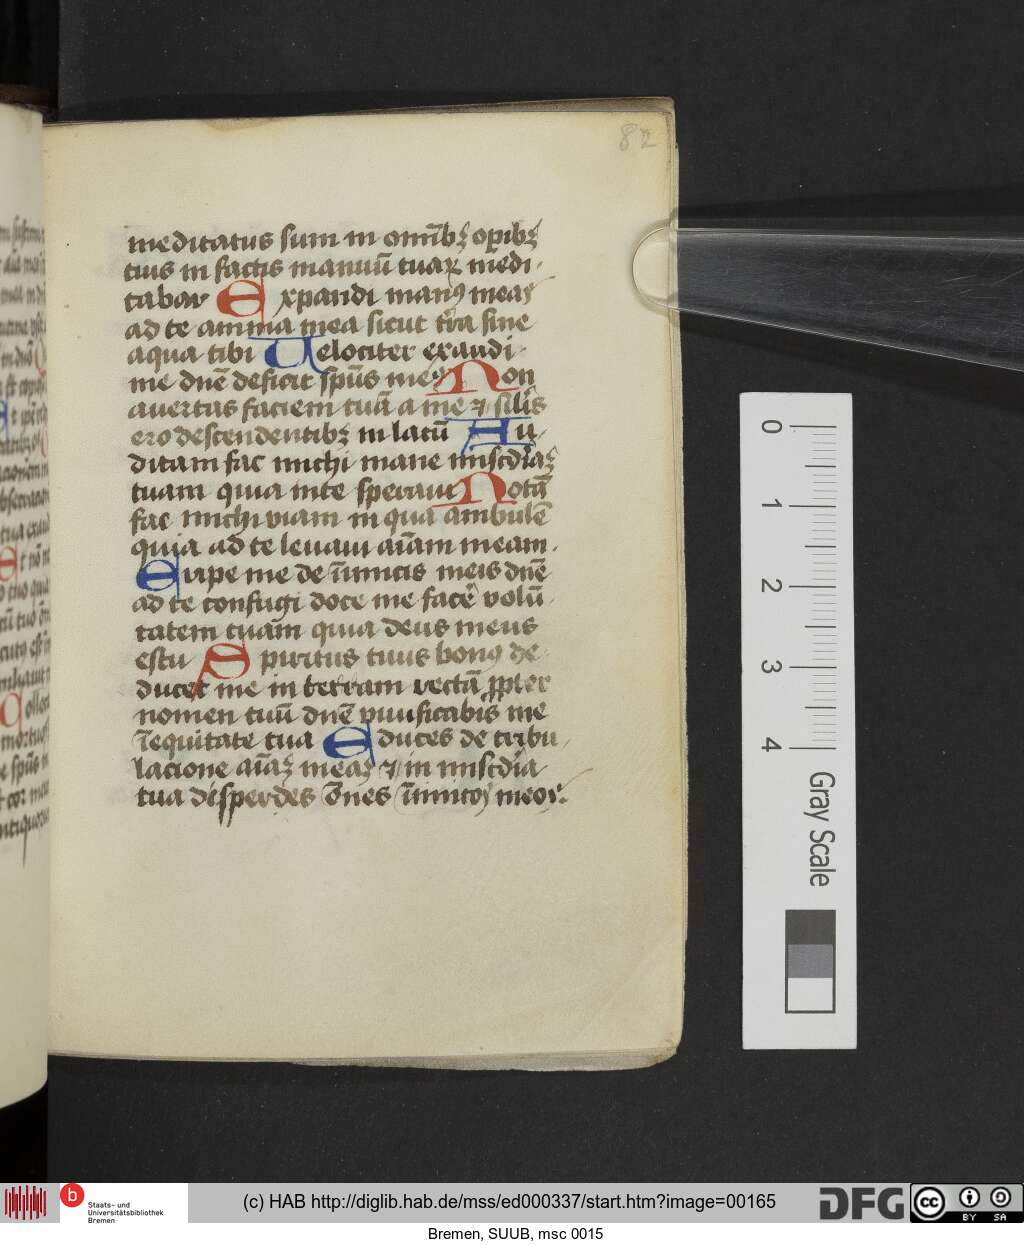 82
meditatus sum in om̄ibꝫ op̄ibꝫ
tuis in factis manuū tuaꝝ medi-
tabar Expandi manꝰ meas
ad te anima mea sicut tr̄a sine
aqua tibi Uelociter exaudi
me dn̄e deficit sp̄us meꝰ Non
auertas faciem tuā a me ⁊ sīlis
ero descendentibꝫ in lacū Au-
ditam fac michi mane mīscd̄iaꝫ
tuam quia in te speraui Notā
fac michi viam in qua ambulē
quia ad te leuaui aīam meam.
Eripe me de īimicis meis dn̄e
ad te confugi doce me facē volū-
tatem tuam quia deus meus
es tu Spiritus tuus bonꝰ de-
ducet me in terram rectā ꝓpter
nomen tuū dn̄e viuificabis me
ī equitate tua Educes de tribu-
lacione aīaꝫ meaꝫ ⁊ in mīscd̄ia
tua disperdes om̄nes īimicos meos.
0
1
2
3
4
Gray Scale
b
Staats- und
Universitätsbibliothek
Bremen
(c) HAB http://diglib.hab.de/mss/ed000337/start.htm?image=00165
DFG
cc
BY SA
Bremen, SUUB, msc 0015